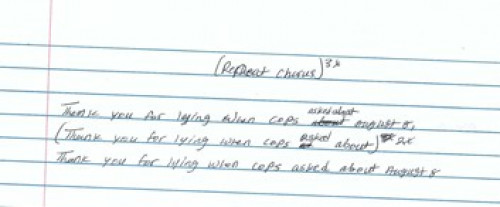 (Repeat Chorus) 3x
asked about
Thank you for lying when cops about August 8,
(Thank you for lying when cops asked about) 2x
Thank you for lying when cops asked about August 8